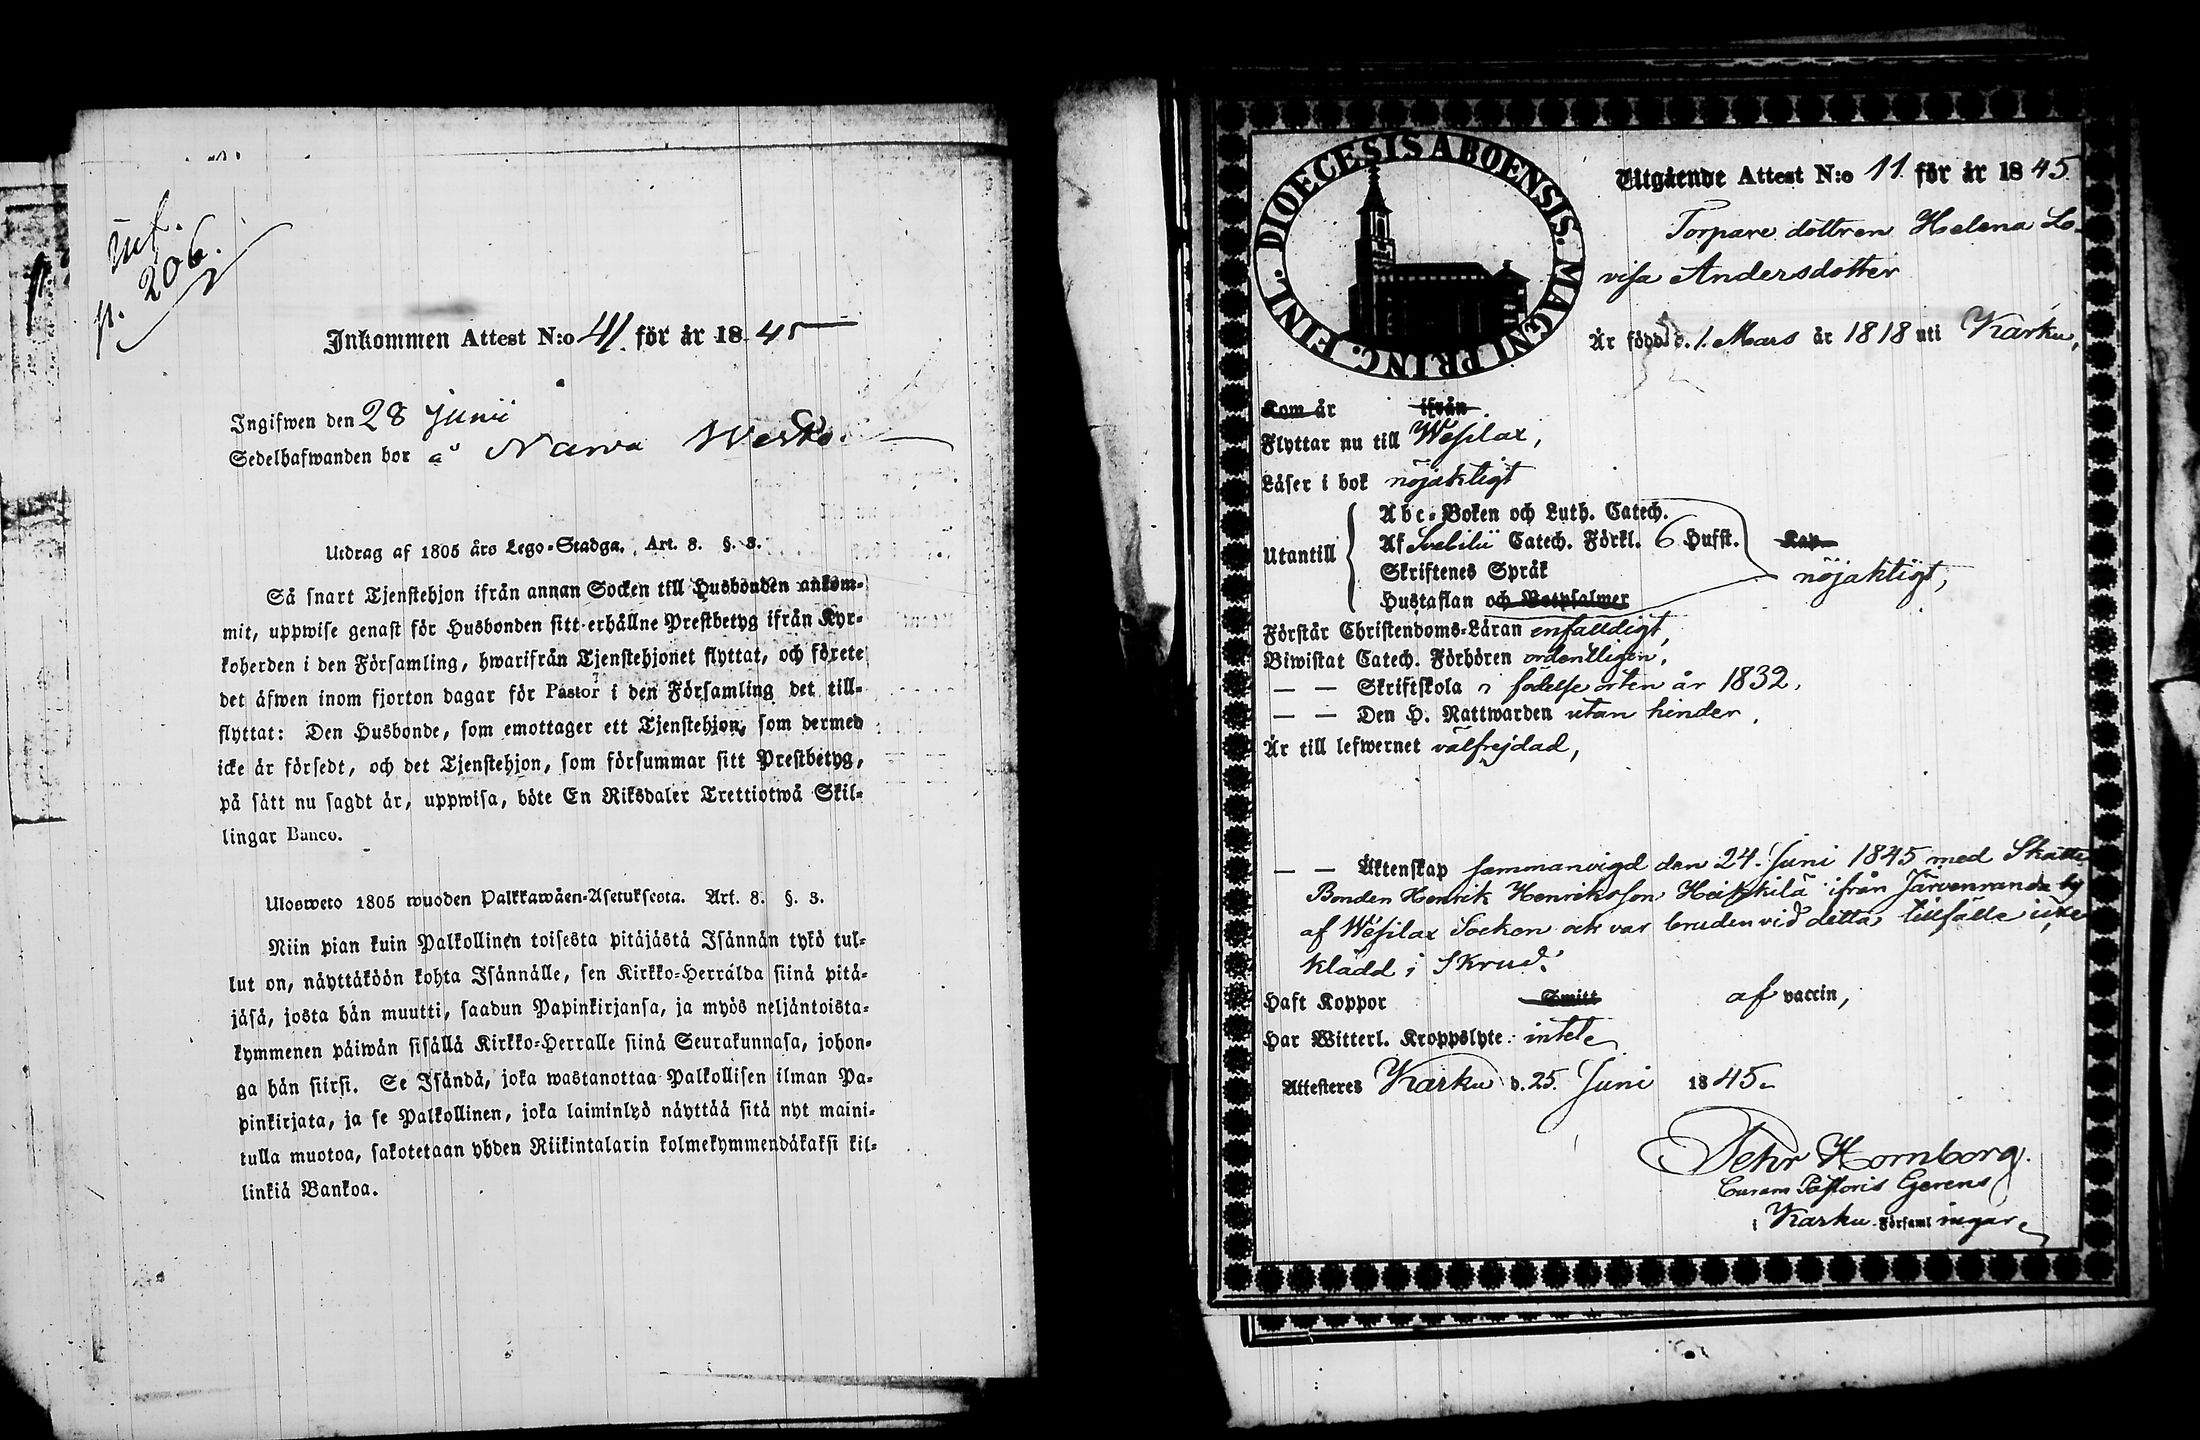 Inf.
p. 206.
Inkommen Attest N:o 41. för år 1845
Ingifwen den 28 Junii
Sedelhafwanden bor å Narva Wesko.
Utdrag af 1805 års Lego-Stadga. Art. 8. §. 3.
Så snart Tjenstehjon ifrån annan Socken till Husbonden ankom-
mit, uppwise genast för Husbonden sitt erhållne Prestbetyg ifrån Kyr-
koherden i den Församling, hwarifrån Tjenstehjonet flyttat, och förete
det äfwen inom fjorton dagar för Pastor i den Församling det till-
flyttat: Den Husbonde, som emottager ett Tjenstehjon, som dermed
icke är försedt, och det Tjenstehjon, som försummar sitt Prestbetyg,
på sätt nu sagdt är, uppwisa, böte En Riksdaler Trettiotwå Skil-
lingar Banco.
Ulosweto 1805 wuoden Palkkawäen-Asetuksesta. Art. 8. §. 3.
Niin pian kuin Palkollinen toisesta pitäjästä Isännän tykö tul-
lut on, näyttäköön kohta Isännälle, sen Kirkko-Herralda siinä pitä-
jäsä, josta hän muutti, saadun Papinkirjansa, ja myös neljäntoista-
kymmenen päiwän sisällä Kirkko-Herralle siinä Seurakunnasa, johon-
ga hän siirsi. Se Isändä, joka wastanottaa Palkollisen ilman Pa-
pinkirjata, ja se Palkollinen, joka laiminlyö näyttää sitä nyt maini-
tulla muotoa, sakotetaan yhden Riikintalarin kolmekymmendäkaksi kil-
linkiä Bankoa.
DIOECESIS ABOENSIS. MAGNI PRINC. FINL.
Utgående Attest N:o 11 för år 1845
Torpare dottren Helena Lo-
visa Andersdotter
Är född d. 1. Mars år 1818 uti Karku,
Kom år ifrån
Flyttar nu till Wesilax,
Läser i bok nöjaktigt
Utantill
Abc-Boken och Luth. Catech.
Af Svebilii Catech. Förkl. 6 Hufst. Kap
Skriftenes Språk nöjaktigt,
Hustaflan och Botpsalmer
Förstår Christendoms-Läran enfaldigt,
Biwistat Catech. Förhören ordentligen,
— — Skriftskola i födelse orten år 1832,
— — Den H. Nattwarden utan hinder,
Är till lefwernet välfrejdad,
— — Äktenskap sammanvigd den 24. Juni 1845 med Skatte
Bonden Henrik Henriksson Heikkilä ifrån Järvenranda by
af Wesilax Socken och var bruden vid detta tillfälle icke
klädd i skrud.
Haft Koppor Smitt af vaccin,
Har Witterl. Kroppslyte intet
Attesteres Karku d. 25. Juni 1845
Pehr Hornborg.
Curam Pastoris Gerens
i Karku Församl ingar